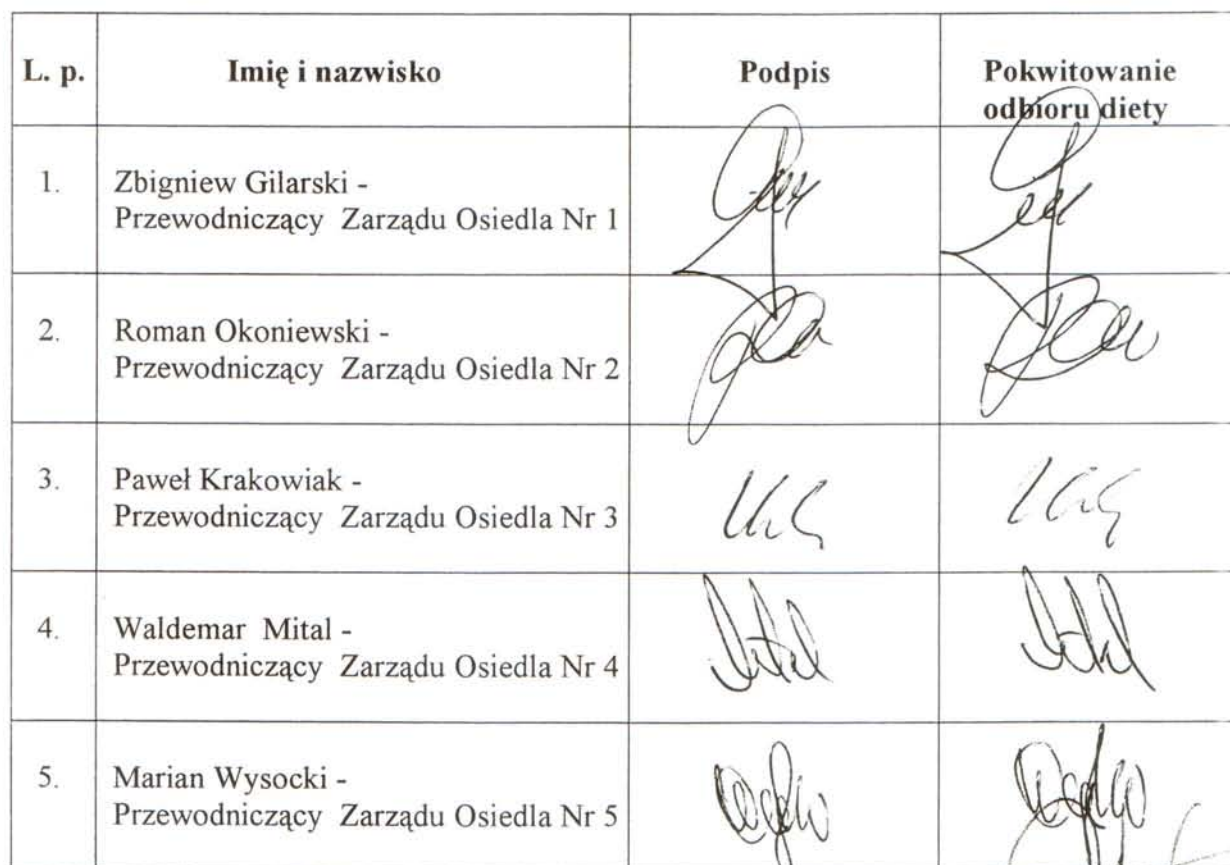 L. p. Imię i nazwisko Podpis Pokwitowanie
odbioru diety
1. Zbigniew Gilarski -
Przewodniczący Zarządu Osiedla Nr 1
2. Roman Okoniewski -
Przewodniczący Zarządu Osiedla Nr 2
3. Paweł Krakowiak -
Przewodniczący Zarządu Osiedla Nr 3
4. Waldemar Mital -
Przewodniczący Zarządu Osiedla Nr 4
5. Marian Wysocki -
Przewodniczący Zarządu Osiedla Nr 5